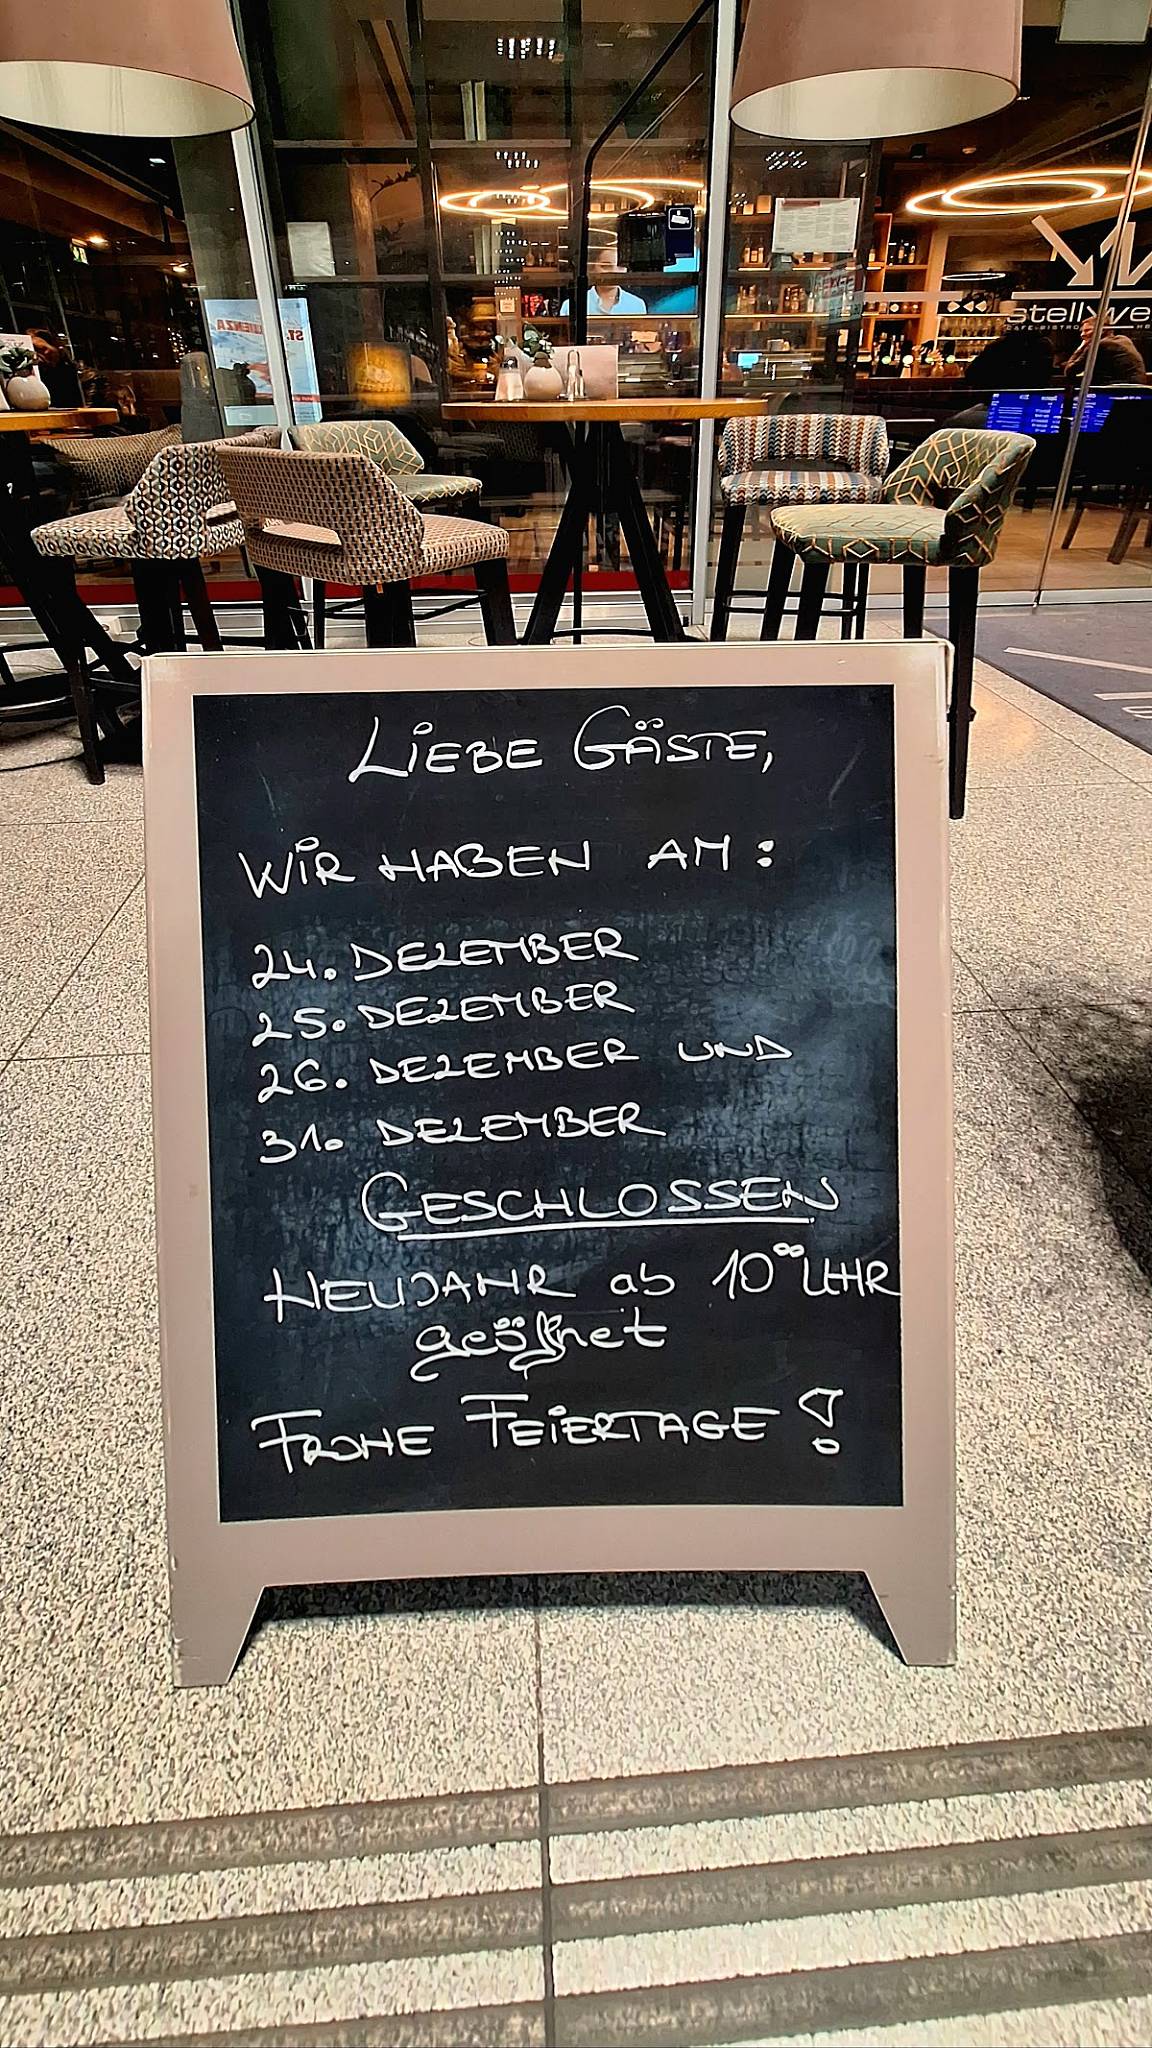 stellwe
CAFE·BISTRO
LIEBE GÄSTE,
WIR HABEN AM:
24. DEZEMBER
25. DEZEMBER
26. DEZEMBER UND
31. DEZEMBER
GESCHLOSSEN
NEUJAHR ab 10⁰⁰ UHR
geöffnet
FROHE FEIERTAGE!